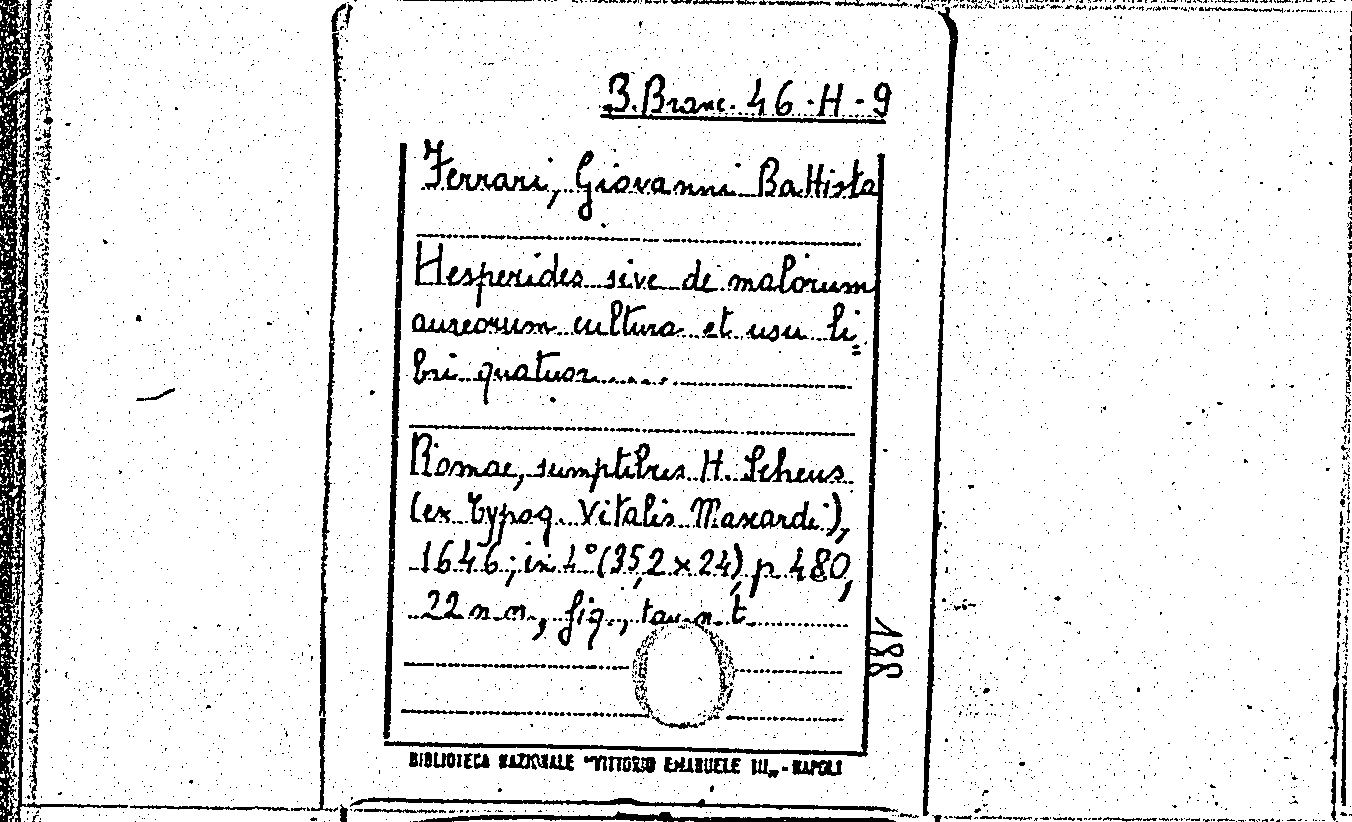 B. Branc. 46-H-9
Ferrari, Giovanni Battista
Hesperides sive de malorum
aureorum cultura et usu li=
bri quatuor.....
Romae, sumptibus H. Scheus
(ex typog. Vitalis Mascardi),
1646; in 4° (35,2 x 24), p. 480,
22 n n., fig., tav. n. t.
188
BIBLIOTECA NAZIONALE "VITTORIO EMANUELE III„ - NAPOLI